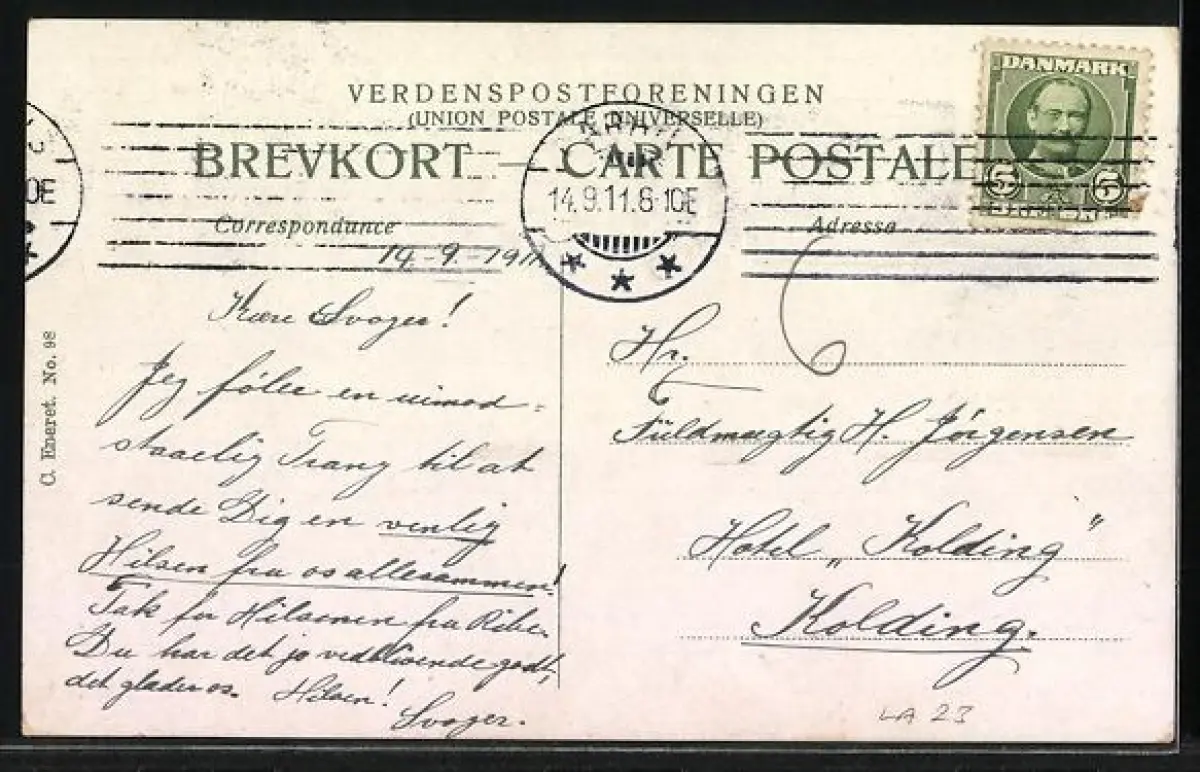 VERDENSPOSTFORENINGEN
(UNION POSTALE UNIVERSELLE)
BREVKORT — CARTE POSTALE
DANMARK
5 5
14.9.11.8-10E
0E
Correspondance
Adresse
14-9-1911
Kære Svoger!
Jeg føler en uimod=
staaelig Trang til at
sende Dig en venlig
Hilsen fra os allesammen!
Tak for Hilsenen fra Ribe.
Du har det jo vedblivende godt,
det glæder os. Hilsen!
Svoger.
Hr.
Fuldmægtig H. Jørgensen
Hotel „Kolding"
Kolding.
C. Eneret. No. 98
LA 23